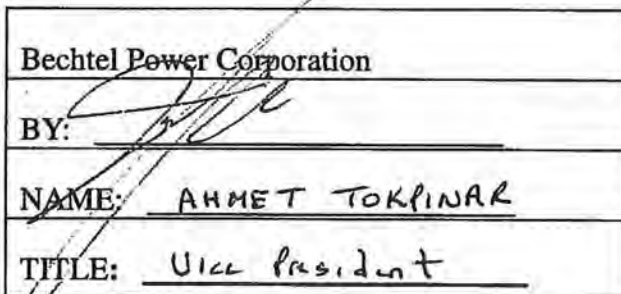 Bechtel Power Corporation
BY:
NAME: AHMET TOKPINAR
TITLE: Vice President